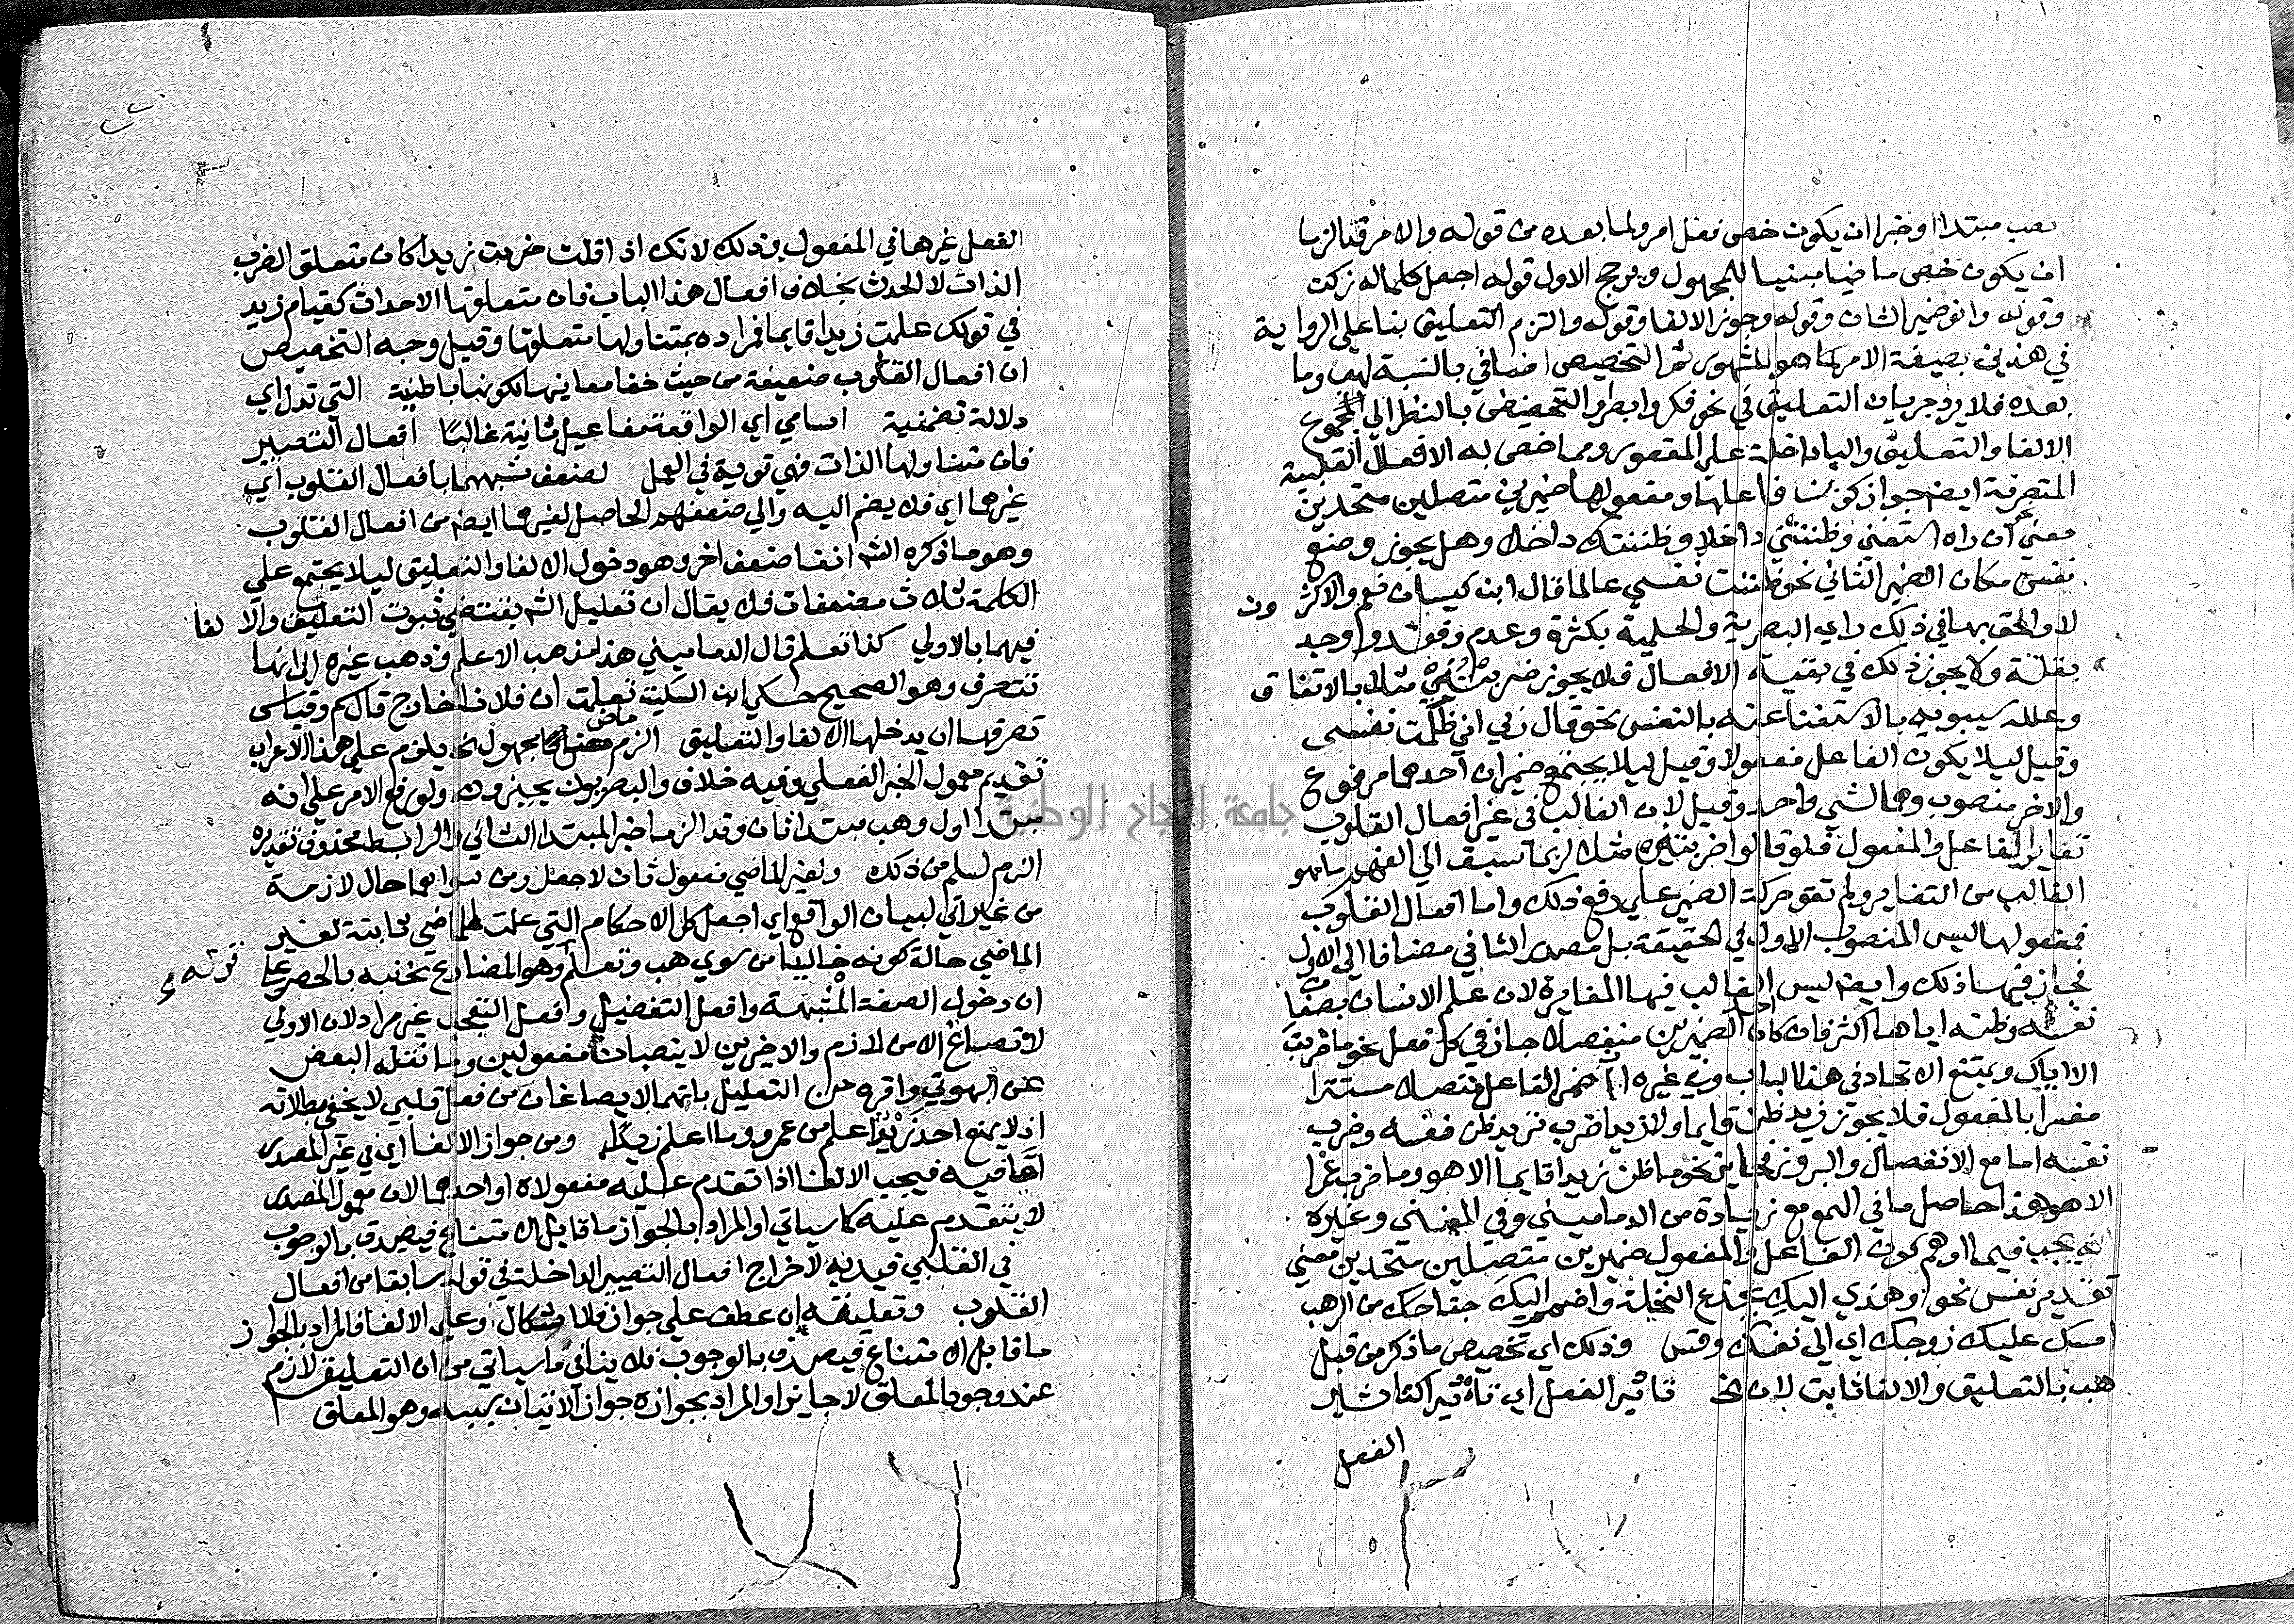 نصب مبتدا وخبرا ان يكون خص فعل امر ولما بعده من قوله والامر قد الزما
ان يكون خص ماضيا مبنيا للمجهول ويرجح الاول قوله اجعل كلما له زكن
وقوله وانو ضمير الشان وقوله وجوز الالغا وقوله والتزم التعليق بنا على الرواية
في هذين بصيغة الامر كما هو المشهور ثم التخصيص اضافي بالنسبة لهب وما
بعده فلا يرد جريان التعليق في نحو فكر وابصر او التخصيص بالنظر الي المجموع
الالغا والتعليق والبا داخلة على المقصور ومما خص به الافعال القلبية
المتصرفة ايضم جواز كون فاعلها ومفعولها ضميرين متصلين متحدين
معني ان راه استغني وظننتني داخلا وظننتك داخلا وهل يجوز وضع
نفس مكان الضمير الثاني نحو ظننت نفسي عالما قال ابن كيسان نعم والاكثرون
لا والحق بها في ذلك راي البصرية والحلمية بكثرة وعدم وفقد ووجد
بقلة ولا يجوز ذلك في بقية الافعال فلا يجوز ضربتني مثلا بالاتفاق
وعلله سيبويه بالاستغنا عنه بالنفس نحو قال ربي اني ظلمت نفسي
وقيل ليلا يكون الفاعل مفعولا وقيل ليلا يجتمع ضميران احدهما مرفوع
والاخر منصوب وهما لشي واحد وقيل لان الغالب في غير افعال القلوب
تغاير الفاعل والمفعول فلو قالوا ضربتني مثلا لربما سبق الي الفهم ما هو
الغالب من التغاير ولم تقو حركة الضمير على دفع ذلك واما افعال القلوب
فمفعولها ليس المنصوب الاول في الحقيقة بل مصدر الثاني مضافا الي الاول
فجاز فيها ذلك وايضم ليس الغالب فيها المغايرة لان علم الانسان بصفات
نفسه وظنه اياها اكثر فان كان احد الضميرين منفصلا جاز في كل فعل نحو ما ضربت
الا اياك ويمتنع الاتحاد في هذا الباب وفي غيره اذا اضمر الفاعل متصلا مستترا
مفسرا بالمفعول فلا يجوز زيد ظن قايما ولا زيد ضرب تريد ظن نفسه وضرب
نفسه اما مع الانفصال والبروز فجايز نحو ما ظن زيدا قايما الا هو وما ضرب عمرا
الا هو هذا حاصل ما في الهمع مع زيادة من الدماميني وفي المغني وغيره
انه يجب فيما اوهم كون الفاعل والمفعول ضميرين متصلين متحدين معني
تقدير نفس نحو وهزي اليك بجذع النخلة واضمم اليك جناحك من الرهب
امسك عليك زوجك اي الي نفسك وقس وذلك اي تخصيص ما ذكر من قبل
هب بالتعليق والالغا ثابت لان الخ تاثير الفعل اي تاثيرا كتاثير
الفعل
الفعل غيرها في المفعول وذلك لانك اذا قلت ضربت زيدا كان متعلق الضرب
الذات لا الحدث بخلاف افعال هذا الباب فان متعلقها الاحداث كقيام زيد
في قولك علمت زيدا قايما فمراده بمتناولها متعلقها وقيل وجه التخصيص
ان افعال القلوب ضعيفة من حيث خفا معاينها لكونها باطنية التي تدل اي
دلالة تضمنية اسامي اي الواقعة مفاعيل ثانية غالبا افعال التصيير
فان متناولها الذات فهي قوية في العمل لضعف شبههما بافعال القلوب اي
غيرهما اي فلا يضم اليه والي ضعفهم الحاصل لغيرهما ايضم من افعال القلوب
وهو ما ذكره الشم انفا ضعف اخر وهو دخول الالغا والتعليق ليلا يجتمع علي
الكلمة ثلاث مضعفات فلا يقال ان تعليل الشم يقتضي ثبوت التعليق والالغا
فيهما بالاولي كذا تعلم قال الدماميني هذا مذهب الاعلم وذهب غيره الي انها
تتصرف وهو الصحيح حكي ابن السكيت تعلمت ان فلانا خارج قاله سم وقياس
تصرفها ان يدخلها الالغا والتعليق الزم ماض مجهول نحو يلزم علي هذا الاعراب
تقديم معمول الخبر الفعلي وفيه خلاف والبصريون يجيزونه ولو رفع الامر علي انه
مبتدا اول وهب مبتدا ثان وقد الزما خبر المبتدا الثاني والرابط محذوف تقديره
الزمه لسلم من ذلك ولغير الماضي مفعول ثان لاجعل ومن سواهما حال لازمة
من غير اتي لبيان الواقع اي اجعل كل الاحكام التي علمت للماضي ثابتة لغير
الماضي حالة كونه خاليا من سوي هب وتعلم وهو المضارع نحنبه بالحصر علي قوله
ان دخول الصفة المشبهة وافعل التفضيل وافعل التعجب غير مراد لان الاولي
لا تصاغ الا من لازم والاخرين لا ينصبان مفعولين وما نقله البعض
عن البهوتي واقره من التعليل بانهما لا يصاغان من فعل قلبي لا يخفي بطلانه
اذ لا يمنع احد زيد اعلم من عمرو وما اعلم زيدا ومن جواز الالغا اي في غير المصدر
اما فيه فيجب الالغا اذا تقدم عليه مفعولاه او احدهما لان معمول المصدر
لا يتقدم عليه كما سياتي او المراد بالجواز ما قابل الامتناع فيصدق بالوجوب
في القلبي قيد به لاخراج افعال التصيير الداخلة في قوله سابقا من افعال
القلوب وتعليقه ان عطف علي جواز فلا اشكال او علي الالغا فالمراد بالجواز
ما قابل الامتناع فيصدق بالوجوب فلا ينافي ما سياتي من ان التعليق لازم
عند وجود المعلق لا جايز او المراد بجوازه جواز الاتيان بسببه وهو المعلق
جامعة النجاح الوطنية